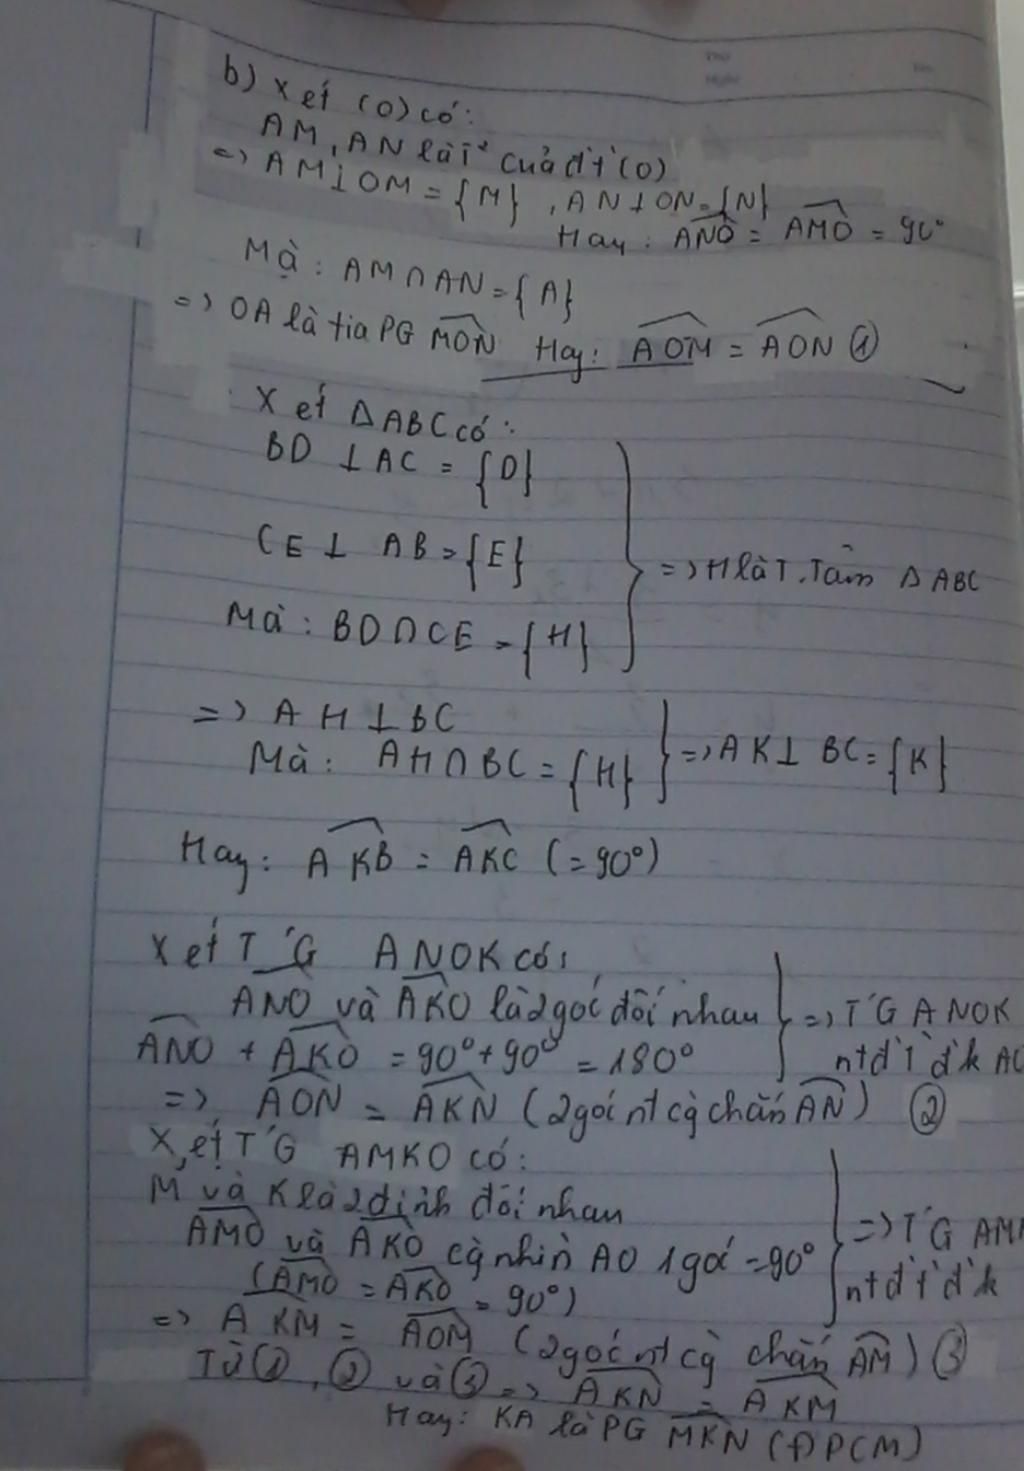 b) Xét (O) có:
AM, AN là T² của đ't' (O)
=> AM ⊥ OM = {M}, AN ⊥ ON = {N}
Hay: ANO = AMO = 90°
Mà: AM ∩ AN = {A}
=> OA là tia PG MON Hay: AOM = AON ①
Xét ΔABC có:
BD ⊥ AC = {D}
CE ⊥ AB = {E} => H là T.Tâm ΔABC
Mà: BD ∩ CE = {H}
=> AH ⊥ BC
Mà: AH ∩ BC = {H} => AK ⊥ BC = {K}
Hay: AKB = AKC (= 90°)
Xét T'G ANOK có:
ANO và AKO là 2 goć đối nhau => T'G ANOK
ANO + AKO = 90° + 90° = 180° ntđ't' đ'k AO
=> AON = AKN (2 goć nt cg̀ chắn AN) ②
Xét T'G AMKO có:
M và K là 2 đỉnh đối nhau
AMO và AKO cg̀ nhìn AO 1 goć = 90° => T'G AM
(AMO = AKO = 90°) ntđ't' đ'k
=> AKM = AOM (2 goć nt cg̀ chắn AM) ③
Từ ①, ② và ③ => AKN = AKM
Hay: KA là PG MKN (ĐPCM)